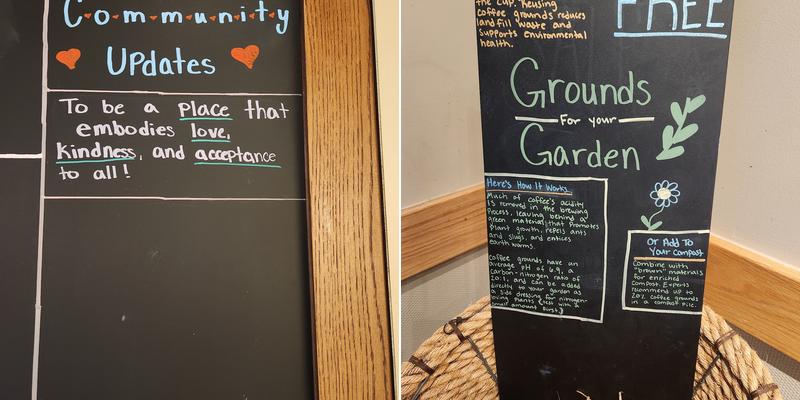 Community
Updates
To be a place that
embodies love,
kindness, and acceptance
to all!
the cup. Reusing
coffee grounds reduces
landfill waste and
supports environmental
health.
FREE
Grounds
For your
Garden
Here's How It Works
Much of coffee's acidity
is removed in the brewing
process, leaving behind a
green material that promotes
plant growth, repels ants
and slugs, and entices
earth worms.
Coffee grounds have an
average pH of 6.9, a
carbon-nitrogen ratio of
20:1, and can be added
directly to your garden as
a side dressing for nitrogen-
loving plants (test with a
small amount first.)
Or Add To
Your Compost
Combine with
"brown" materials
for enriched
compost. Experts
recommend up to
20% coffee grounds
in a compost pile.